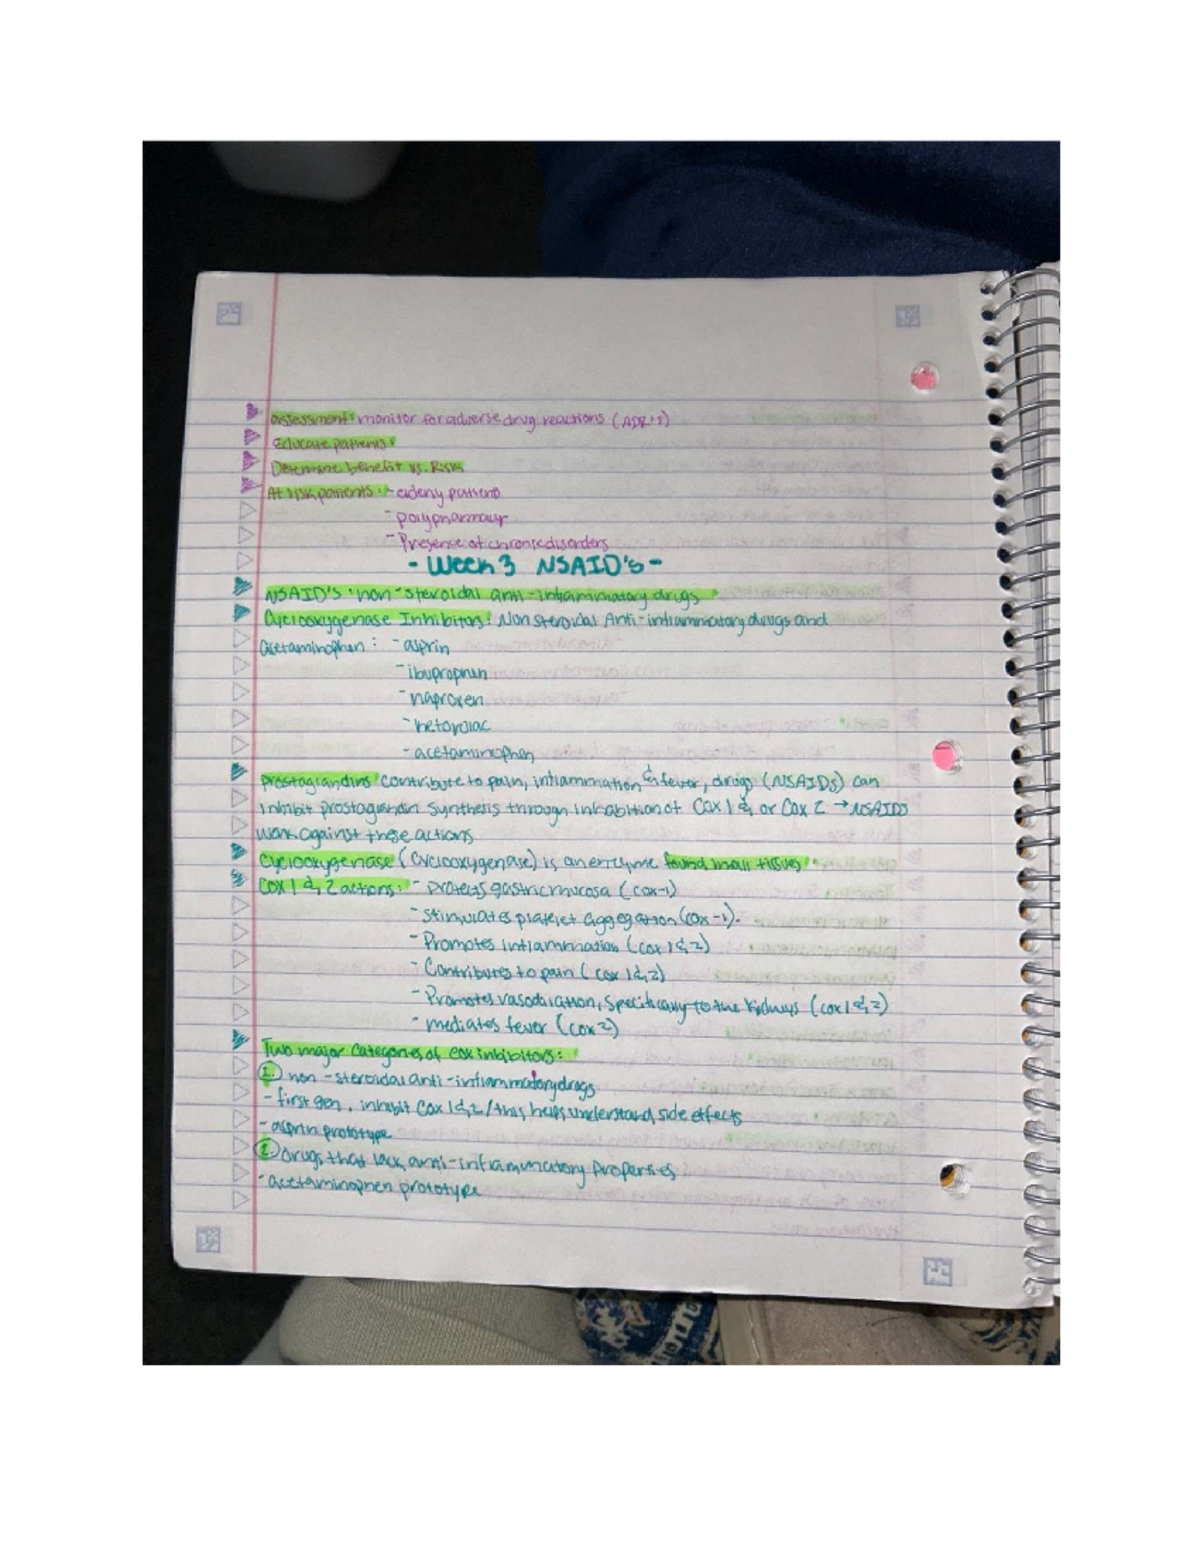 assessment: monitor for adverse drug reactions (ADR's)
Educate patients:
Determine benefit vs. Risk
At risk patients: - elderly patients
- polypharmacy
- Presence of chronic disorders
- Week 3 NSAID's -
NSAID's: non-steroidal anti-inflammatory drugs
Cyclooxygenase Inhibitors: Non Steroidal Anti-inflammatory drugs and
acetaminophen: - asprin
- ibuprophen
- naproxen
- ketorolac
- acetaminophen
prostaglandins contribute to pain, inflammation & fever, drugs (NSAIDs) can
inhibit prostaglandin synthesis through inhabition of Cox 1 & or Cox 2 → NSAIDS
work against these actions
Cyclooxygenase (Cyclooxygenase) is an enzyme found in all tissues
Cox 1 & 2 actions: - protects gastric mucosa (cox-1)
- stimulates platelet aggegation (cox-1).
- Promotes inflammation (cox 1 & 2)
- Contributes to pain (cox 1 & 2)
- Promotes vasodilation, specifically to the kidneys (cox 1 & 2)
- mediates fever (cox 2)
Two major categories of cox inhibitors:
1. non-steroidal anti-inflammatory drugs
- first gen. inhibit Cox 1 & 2 / this helps understand side effects
- asprin prototype
2. drugs that lack anti-inflammatory properties
- acetaminophen prototype